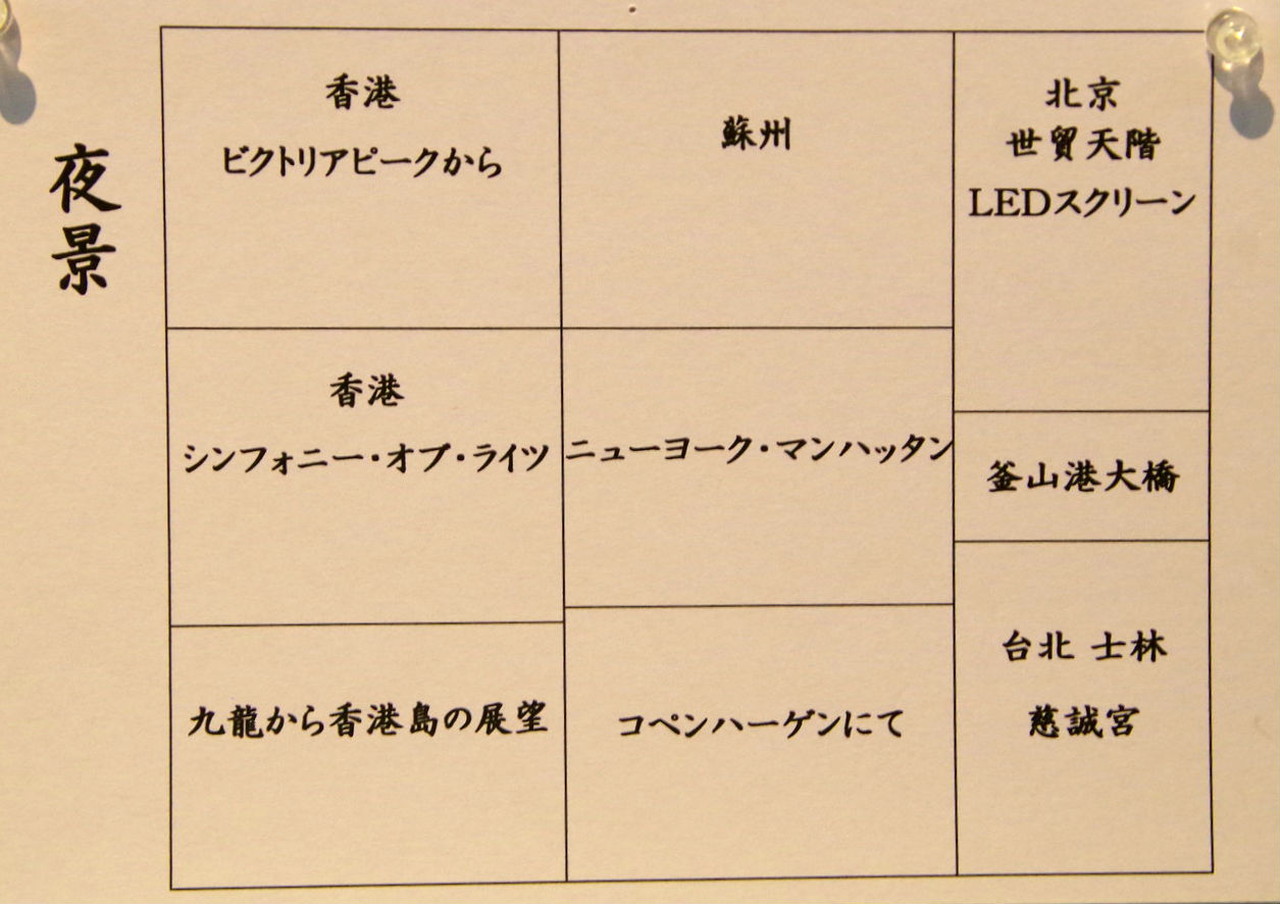 夜景
香港
ビクトリアピークから
蘇州
北京
世貿天階
LEDスクリーン
香港
シンフォニー・オブ・ライツ
ニューヨーク・マンハッタン
釜山港大橋
九龍から香港島の展望
コペンハーゲンにて
台北 士林
慈諴宮